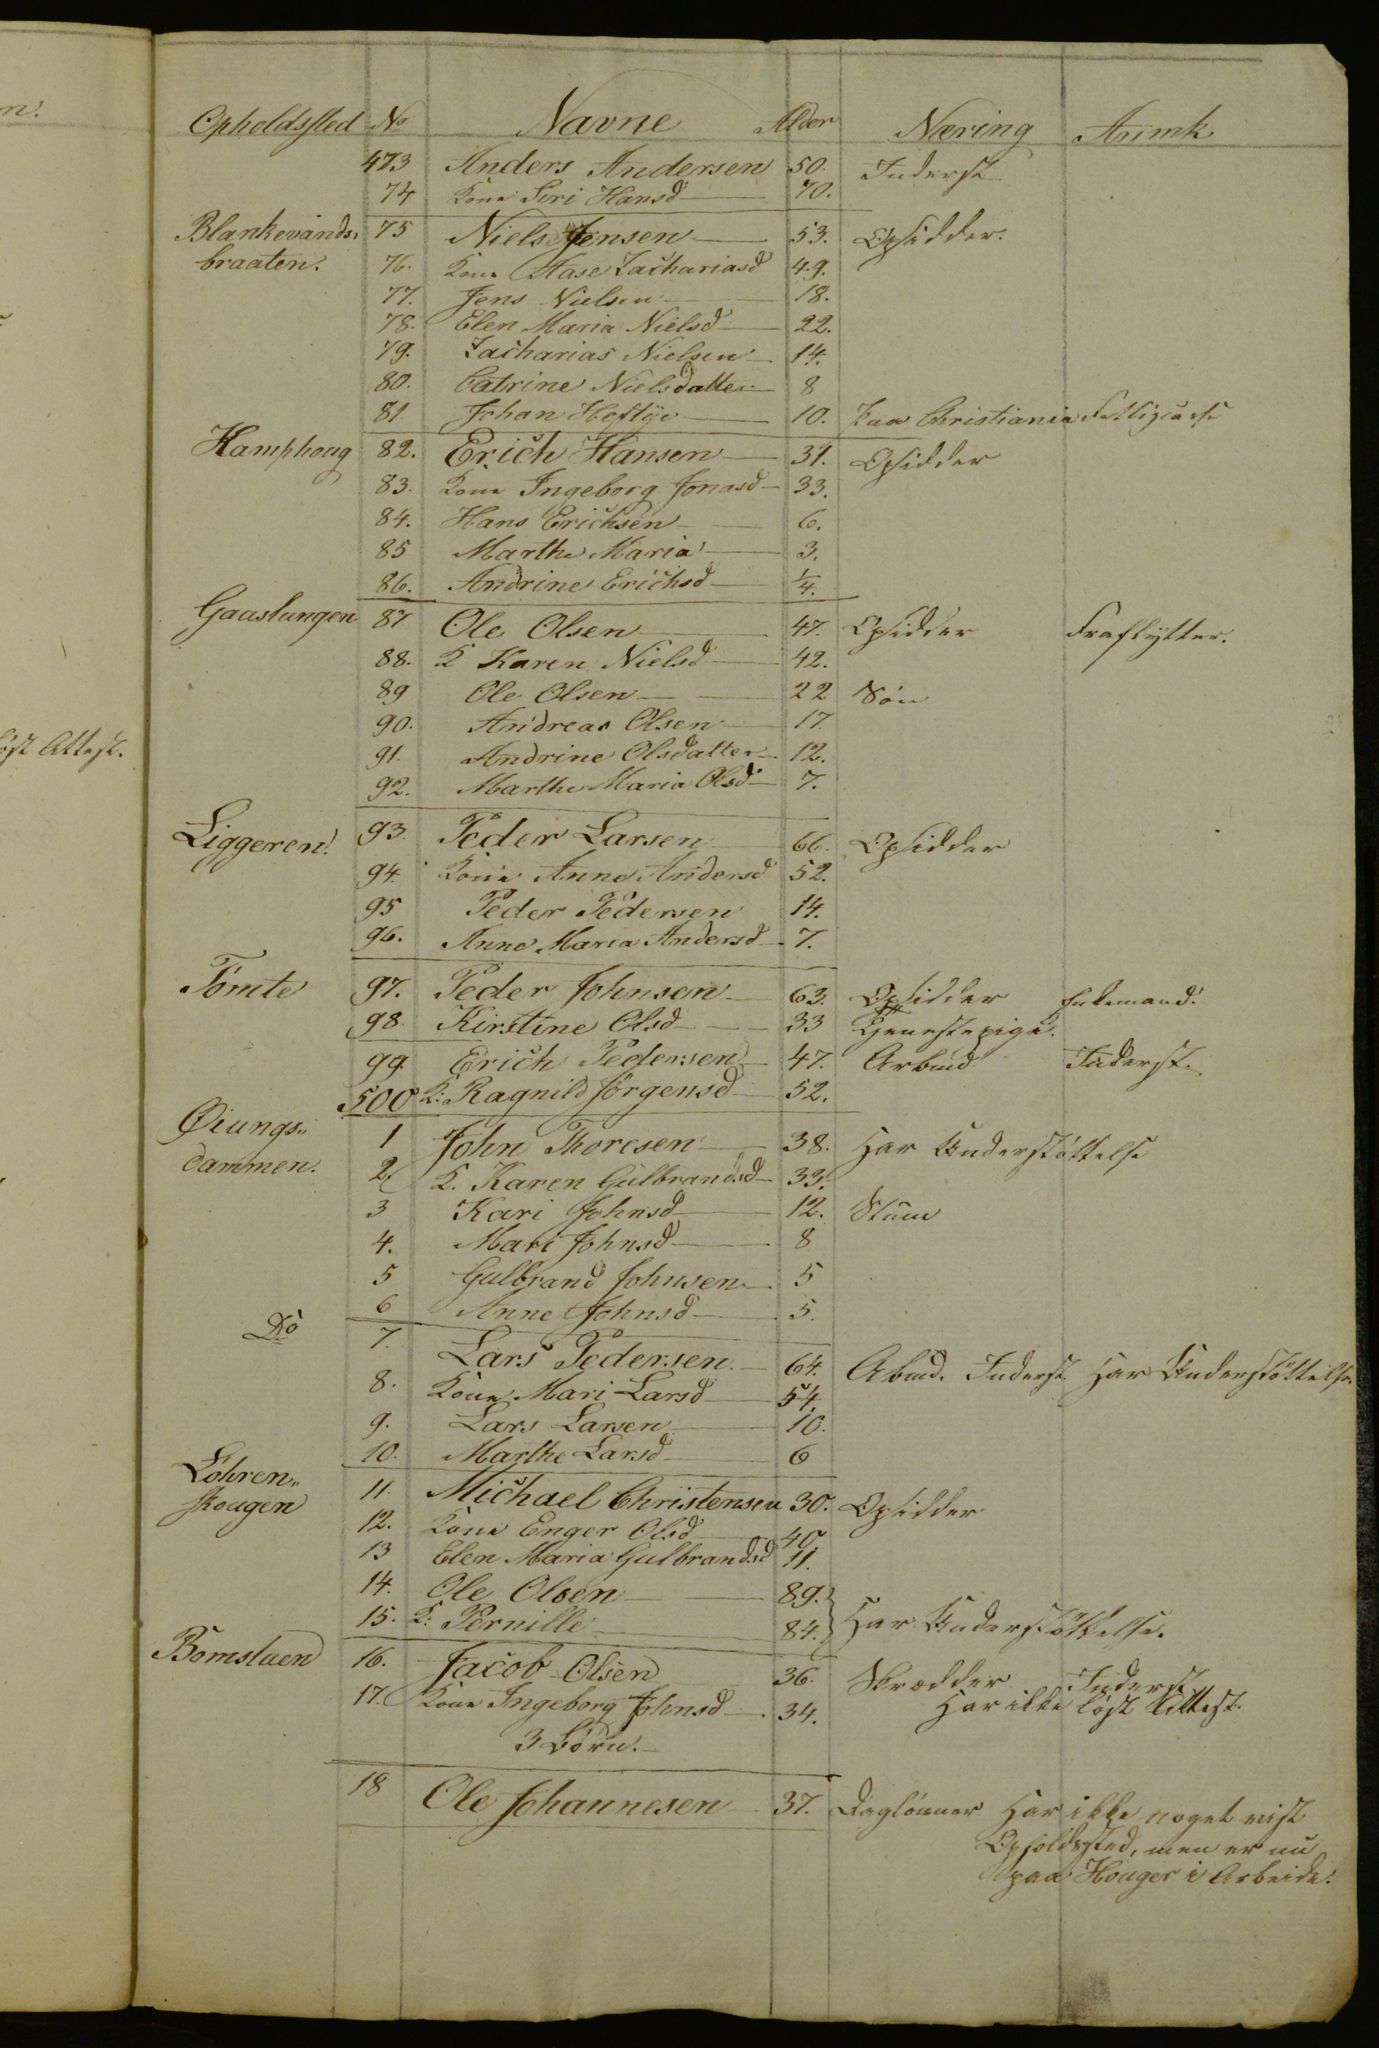 Opholdssted No Navne Alder Næring Anmk
473 Anders Andersen 50. Inderst
74 Kone Siri Hansd 70.
Blankevands- 75 Niels Jensen 53. Opsidder.
braaten. 76. Kone Aase Zachariasd 49.
77. Jens Nielsen 18.
78. Elen Maria Nielsd 22.
79. Zacharias Nielsen 14.
80. Catrine Nielsdatter 8
81 Johan Heftije 10. paa Christiania Fattigcasse
Kamphoug 82. Erich Hansen 31. Opsidder
83. Kone Ingeborg Jonasd 33.
84. Hans Erichsen 6.
85 Marthe Maria 3.
86. Andrine Erichsd 1/4.
Gaaslungen 87 Ole Olsen 47. Opsidder Fraflytter.
88. K Karen Nielsd 42.
89 Ole Olsen 22 Søn
90. Andreas Olsen 17.
91. Andrine Olsdatter 12.
92. Marthe Maria Olsd 7.
Liggeren. 93. Peder Larsen 66. Opsidder
94. Kone Anne Andersd 52.
95 Peder Pedersen 14.
96. Anne Maria Andersd 7.
Tømte 97. Peder Johnsen 63. Opsidder Enkemand.
98. Kirstine Olsd 33 Tjenestepige.
99. Erich Pedersen 47. Arbmd Inderst.
500 K: Ragnild Jørgensd 52.
Øiungs- 1 John Thoresen 38. Har Understøttelse
dammen. 2. K. Karen Gulbrandsd 33.
3 Kari Johnsd 12. Stum
4. Mari Johnsd 8
5 Gulbrand Johnsen 5
6 Anne Johnsd 5.
Do 7. Lars Pedersen 64. Abmd. Inderst Har Understøttelse.
8. Kone Mari Larsd 54.
9. Lars Larsen 10.
10. Marthe Larsd 6
Løhren- 11. Michael Christensen 30. Opsidder
skougen 12. Kone Enger Olsd 40
13 Elen Maria Gulbrandsd 11.
14. Ole Olsen 89.
15. K: Pernille 84. Har Understøttelse.
Bomstuen 16. Jacob Olsen 36. Skrædder Inderst
17. Kone Ingeborg Johnsd 34. Har ikke løst Attest.
3 Børn.
18 Ole Johannesen 37. Daglønner Har ikke noget vist
Opholdssted, men er nu
paa Houger i Arbeide.
løst Attest.